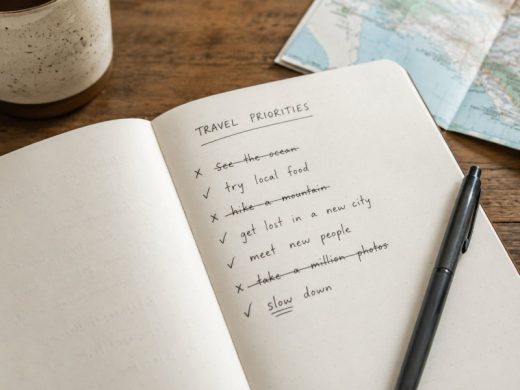 TRAVEL PRIORITIES
x See the ocean
✓ try local food
x hike a mountain
✓ get lost in a new city
✓ meet new people
x take a million photos
✓ slow down